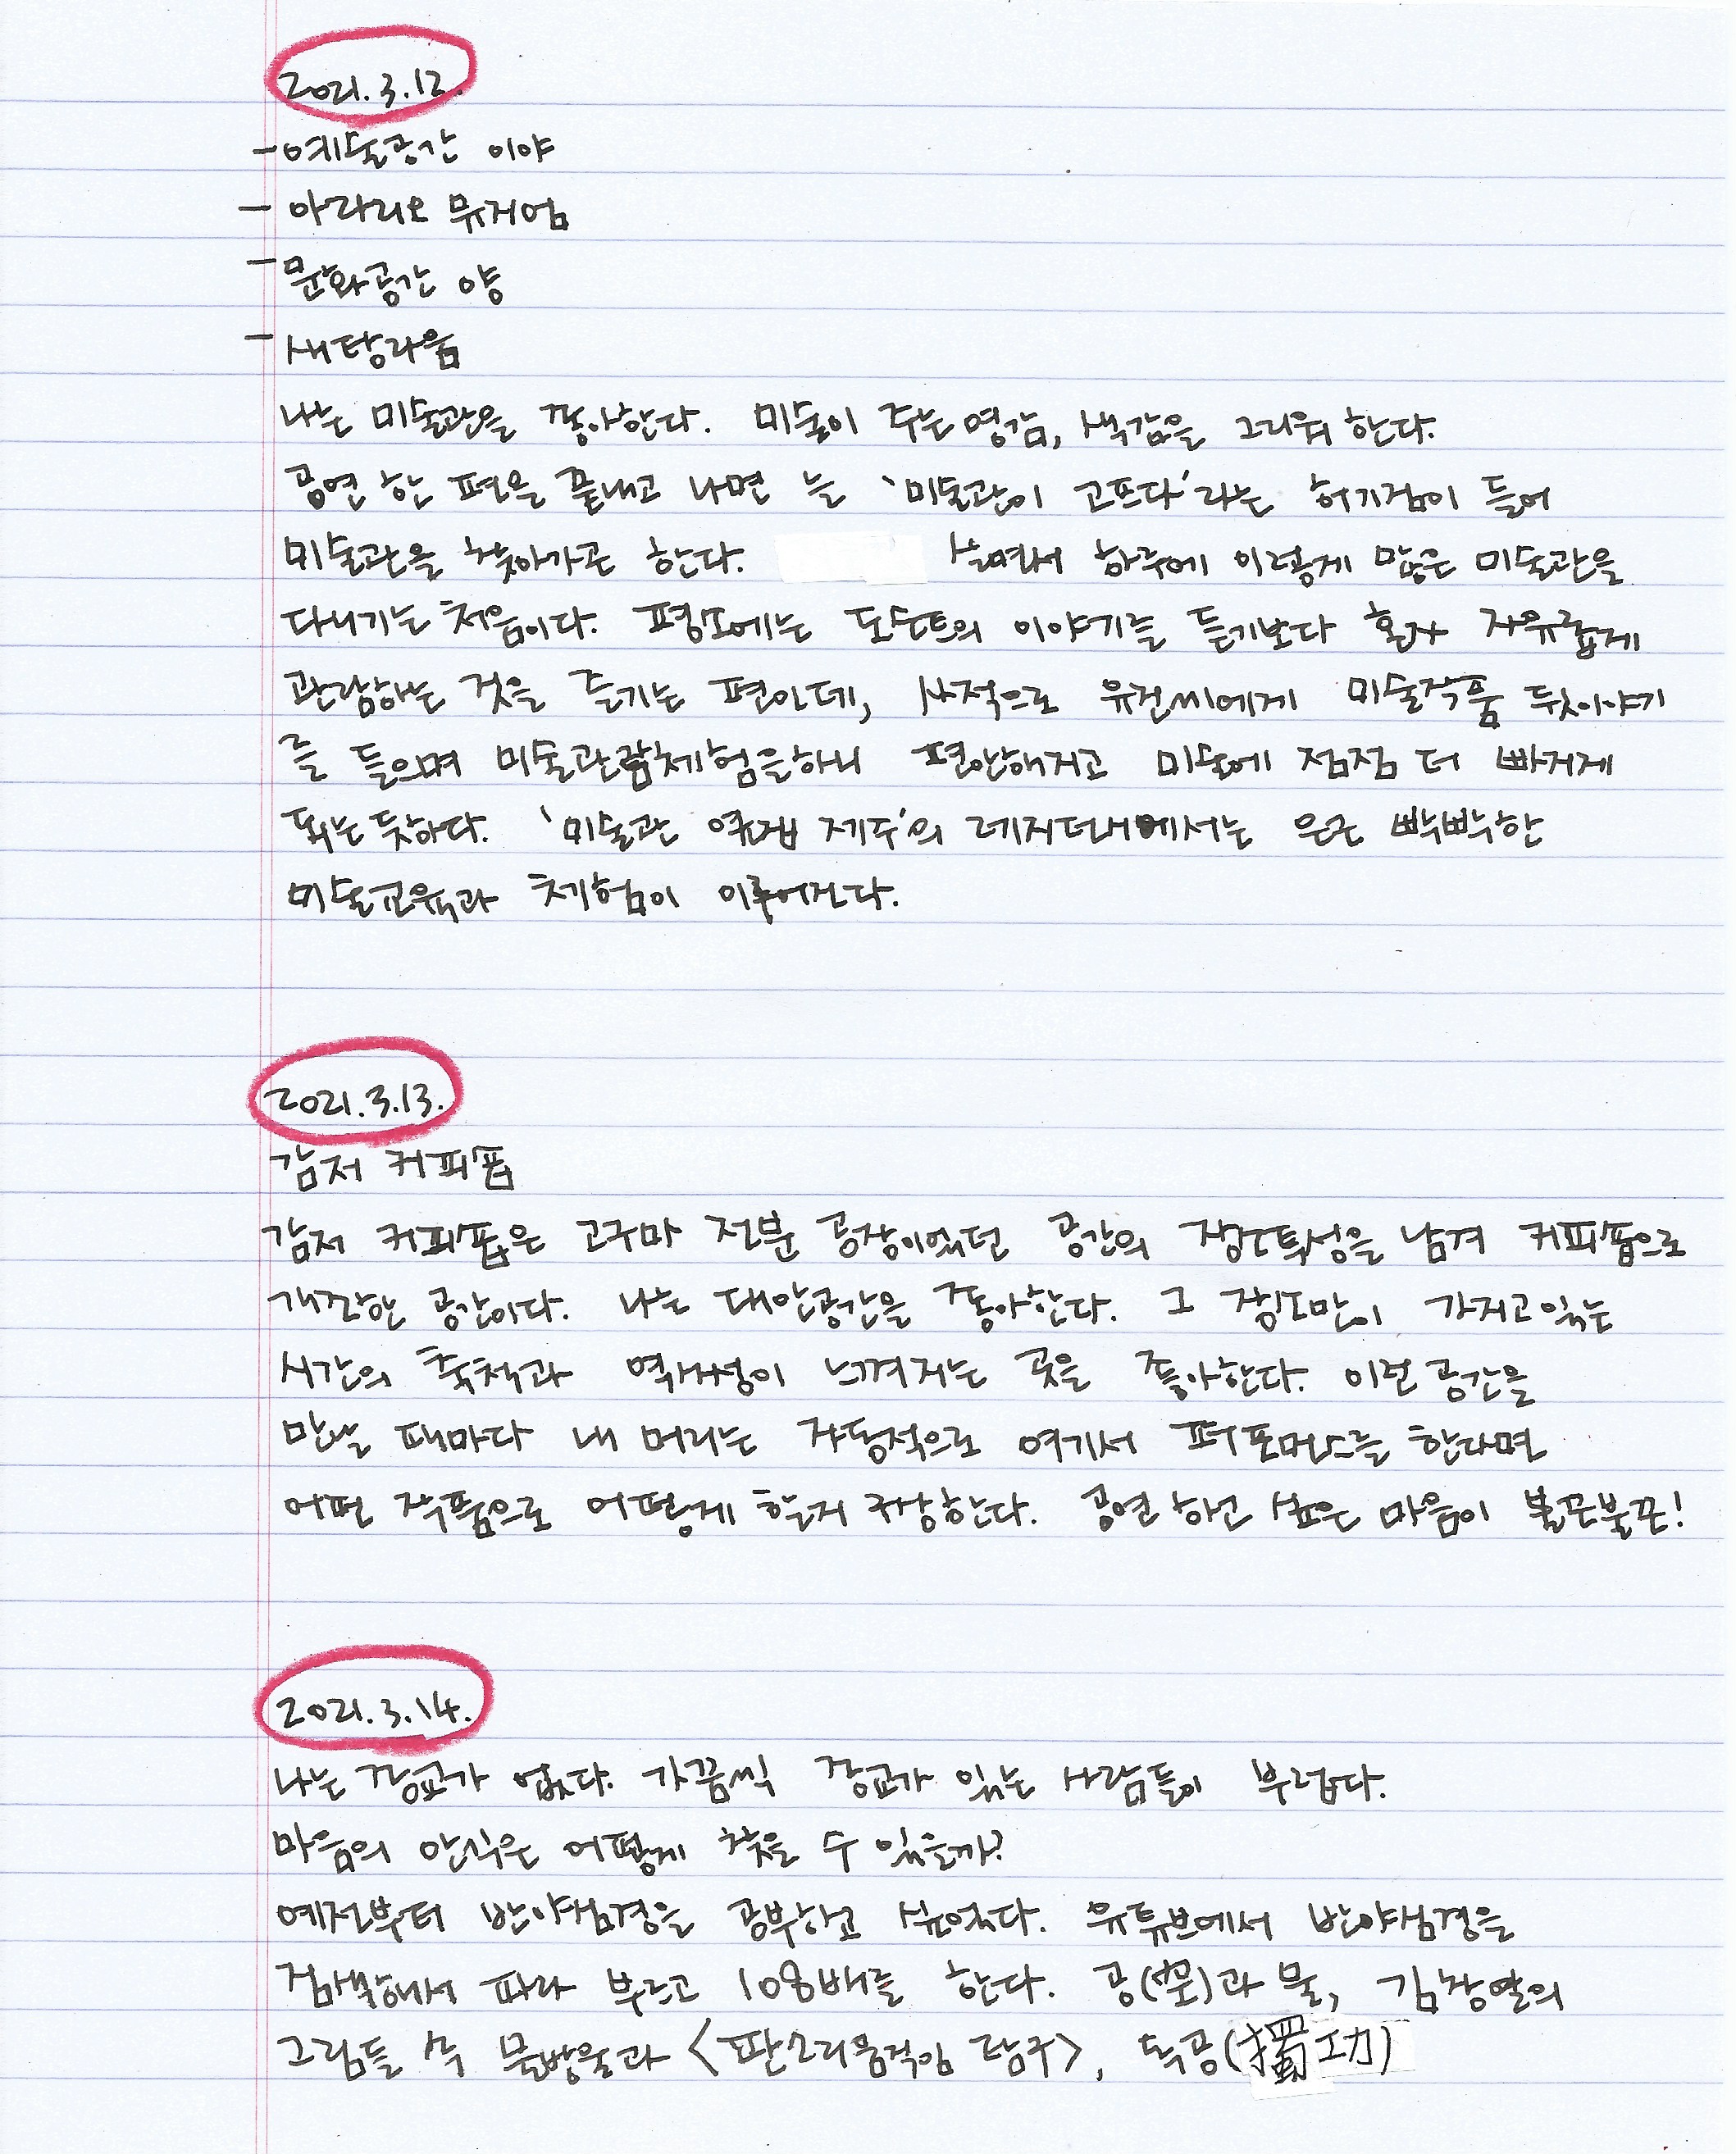 2021.3.12.
-예술공간 이야
- 아라리오 뮤지엄
- 문화공간 양
- 새탕라움
나는 미술관을 좋아한다. 미술이 주는 영감, 색감을 그리워 한다.
공연 한 편을 끝내고 나면 늘 '미술관이 고프다'라는 허기짐이 들어
미술관을 찾아가곤 한다. 살면서 하루에 이렇게 많은 미술관을
다니기는 처음이다. 평소에는 도슨트의 이야기를 듣기보다 혼자 자유롭게
관람하는 것을 즐기는 편인데, 사적으로 유진씨에게 미술작품 뒷이야기
를 들으며 미술관람체험을하니 편안해지고 미술에 점점 더 빠지게
되는 듯하다. '미술관 옆집 제주'의 레지던시에서는 은근 빡빡한
미술교육과 체험이 이루어진다.
2021.3.13.
감저 커피숍
감저 커피숍은 고구마 전분 공장이었던 공간의 장소특성을 남겨 커피숍으로
개조한 공간이다. 나는 대안공간을 좋아한다. 그 장소만이 가지고있는
시간의 축척과 역사성이 느껴지는 곳을 좋아한다. 이런 공간을
만날 때마다 내 머리는 자동적으로 여기서 퍼포먼스를 한다면
어떤 작품으로 어떻게 할지 구상한다. 공연 하고 싶은 마음이 불끈불끈!
2021.3.14.
나는 종교가 없다. 가끔씩 종교가 있는 사람들이 부럽다.
마음의 안식은 어떻게 찾을 수 있을까?
예전부터 반야심경을 공부하고 싶었다. 유튜브에서 반야심경을
검색해서 따라 부르고 108배를 한다. 공(空)과 물, 김창열의
그림들 속 물방울과 〈판소리움직임 탐구〉, 독공(獨功)